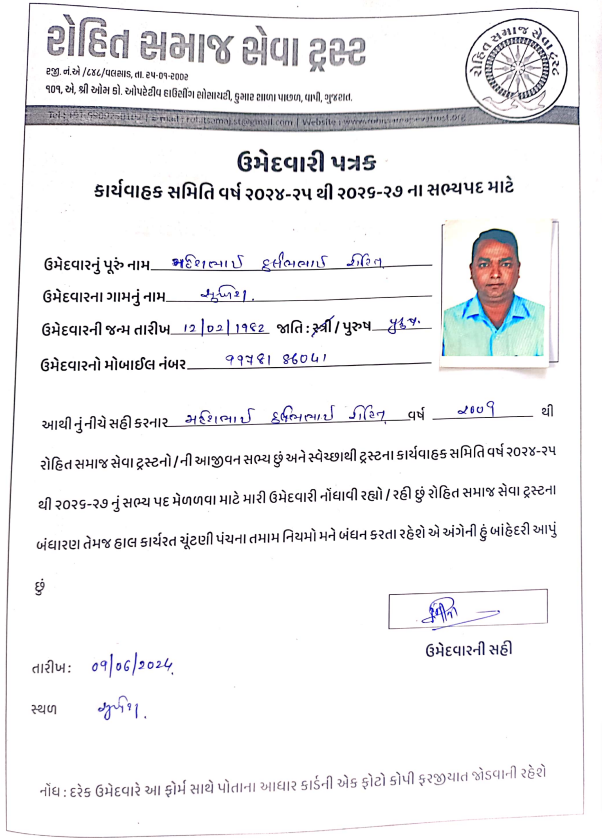 રોહિત સમાજ સેવા ટ્રસ્ટ
રજી. નં.એ /૮૪૮/વલસાડ, તા. ૨૫-૦૧-૨૦૦૨
૧૦૧, એ, શ્રી ઓમ કો. ઓપરેટીવ હાઉસીંગ સોસાયટી, કુમાર શાળા પાછળ, વાપી, ગુજરાત.
રોહિત સમાજ સેવા ટ્રસ્ટ
ઉમેદવારી પત્રક
કાર્યવાહક સમિતિ વર્ષ ૨૦૨૪-૨૫ થી ૨૦૨૬-૨૭ ના સભ્યપદ માટે
ઉમેદવારનું પૂરું નામ મહેશભાઈ દુર્લભભાઈ રોહિત
ઉમેદવારના ગામનું નામ
ઉમેદવારની જન્મ તારીખ 12/02/19૬૨ જાતિ : સ્ત્રી / પુરુષ પુરુષ.
ઉમેદવારનો મોબાઈલ નંબર
આથી નું નીચે સહી કરનાર મહેશભાઈ દુર્લભભાઈ રોહિત વર્ષ ૨૦૦૧ થી
રોહિત સમાજ સેવા ટ્રસ્ટનો / ની આજીવન સભ્ય છું અને સ્વેચ્છાથી ટ્રસ્ટના કાર્યવાહક સમિતિ વર્ષ ૨૦૨૪-૨૫
થી ૨૦૨૬-૨૭ નું સભ્ય પદ મેળળવા માટે મારી ઉમેદવારી નોંધાવી રહ્યો / રહી છું રોહિત સમાજ સેવા ટ્રસ્ટના
બંધારણ તેમજ હાલ કાર્યરત ચૂંટણી પંચના તમામ નિયમો મને બંધન કરતા રહેશે એ અંગેની હું બાંહેદરી આપું
છું
ઉમેદવારની સહી
તારીખ: 09/06/2024
સ્થળ
નોંધ : દરેક ઉમેદવારે આ ફોર્મ સાથે પોતાના આધાર કાર્ડની એક ફોટો કોપી ફરજીયાત જોડવાની રહેશે